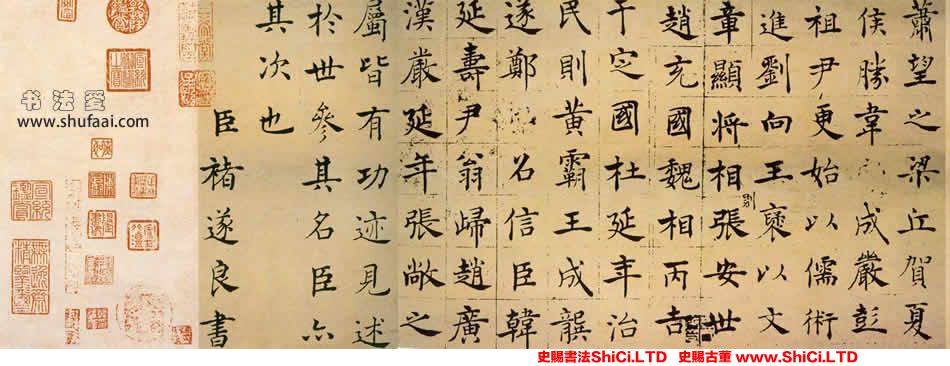 蕭望之梁丘賀夏
侯勝韋成嚴彭
祖尹更始以儒術
進劉向王褒以文
章顯將相張安世
趙充國魏相丙吉
于定國杜延年治
民則黃霸王成龔
遂鄭召信臣韓
延壽尹翁歸趙廣
漢嚴延年張敞之
屬皆有功迹見述
於世參其名臣亦
其次也
臣褚遂良書
书法爱
www.shufaai.com
史賜書法ShiCi.LTD 史賜古董 www.ShiCi.LTD